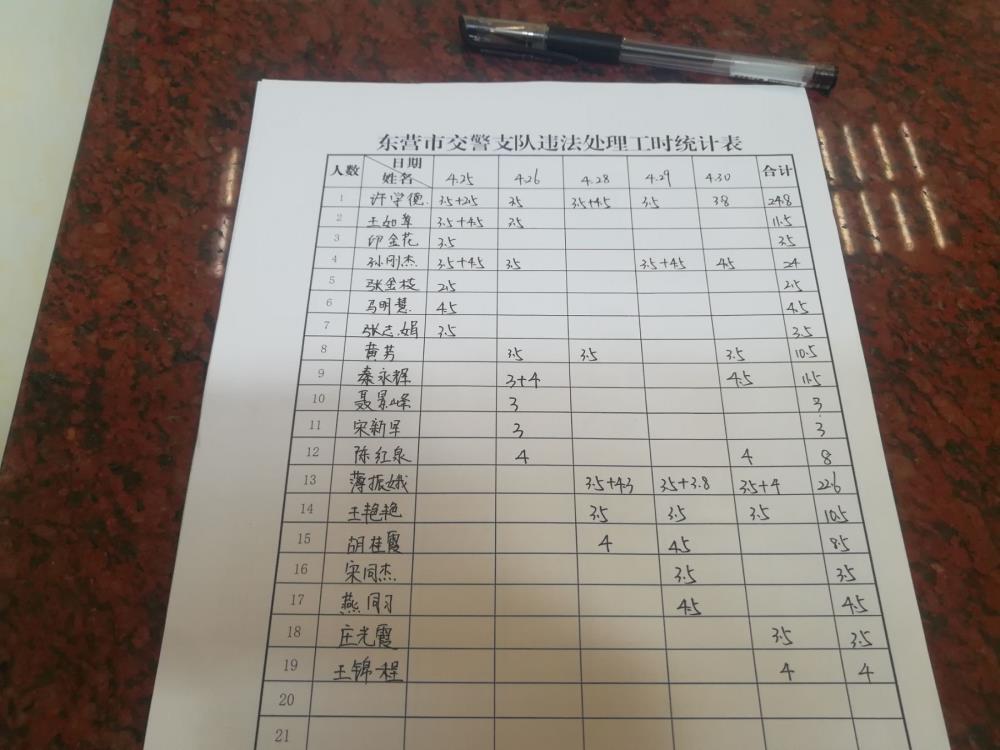 东营市交警支队违法处理工时统计表
人数 日期 姓名 4.25 4.26 4.28 4.29 4.30 合计
1 许学德 3.5+2.5 3.5 3.5+4.5 3.5 3.8 24.8
2 王如军 3.5+4.5 3.5 11.5
3 印金花 3.5 3.5
4 孙刚杰 3.5+4.5 3.5 3.5+4.5 4.5 24
5 张金枝 2.5 2.5
6 马明慧 4.5 4.5
7 张志娟 3.5 3.5
8 黄芳 3.5 3.5 3.5 10.5
9 秦永辉 3+4 4.5 11.5
10 聂景峰 3 3
11 宋新军 3 3
12 陈红泉 4 4 8
13 薄振娥 3.5+4.3 3.5+3.8 3.5+4 22.6
14 王艳艳 3.5 3.5 3.5 10.5
15 胡桂霞 4 4.5 8.5
16 宋同杰 3.5 3.5
17 燕同习 4.5 4.5
18 庄光霞 3.5 3.5
19 王锦程 4 4
20
21